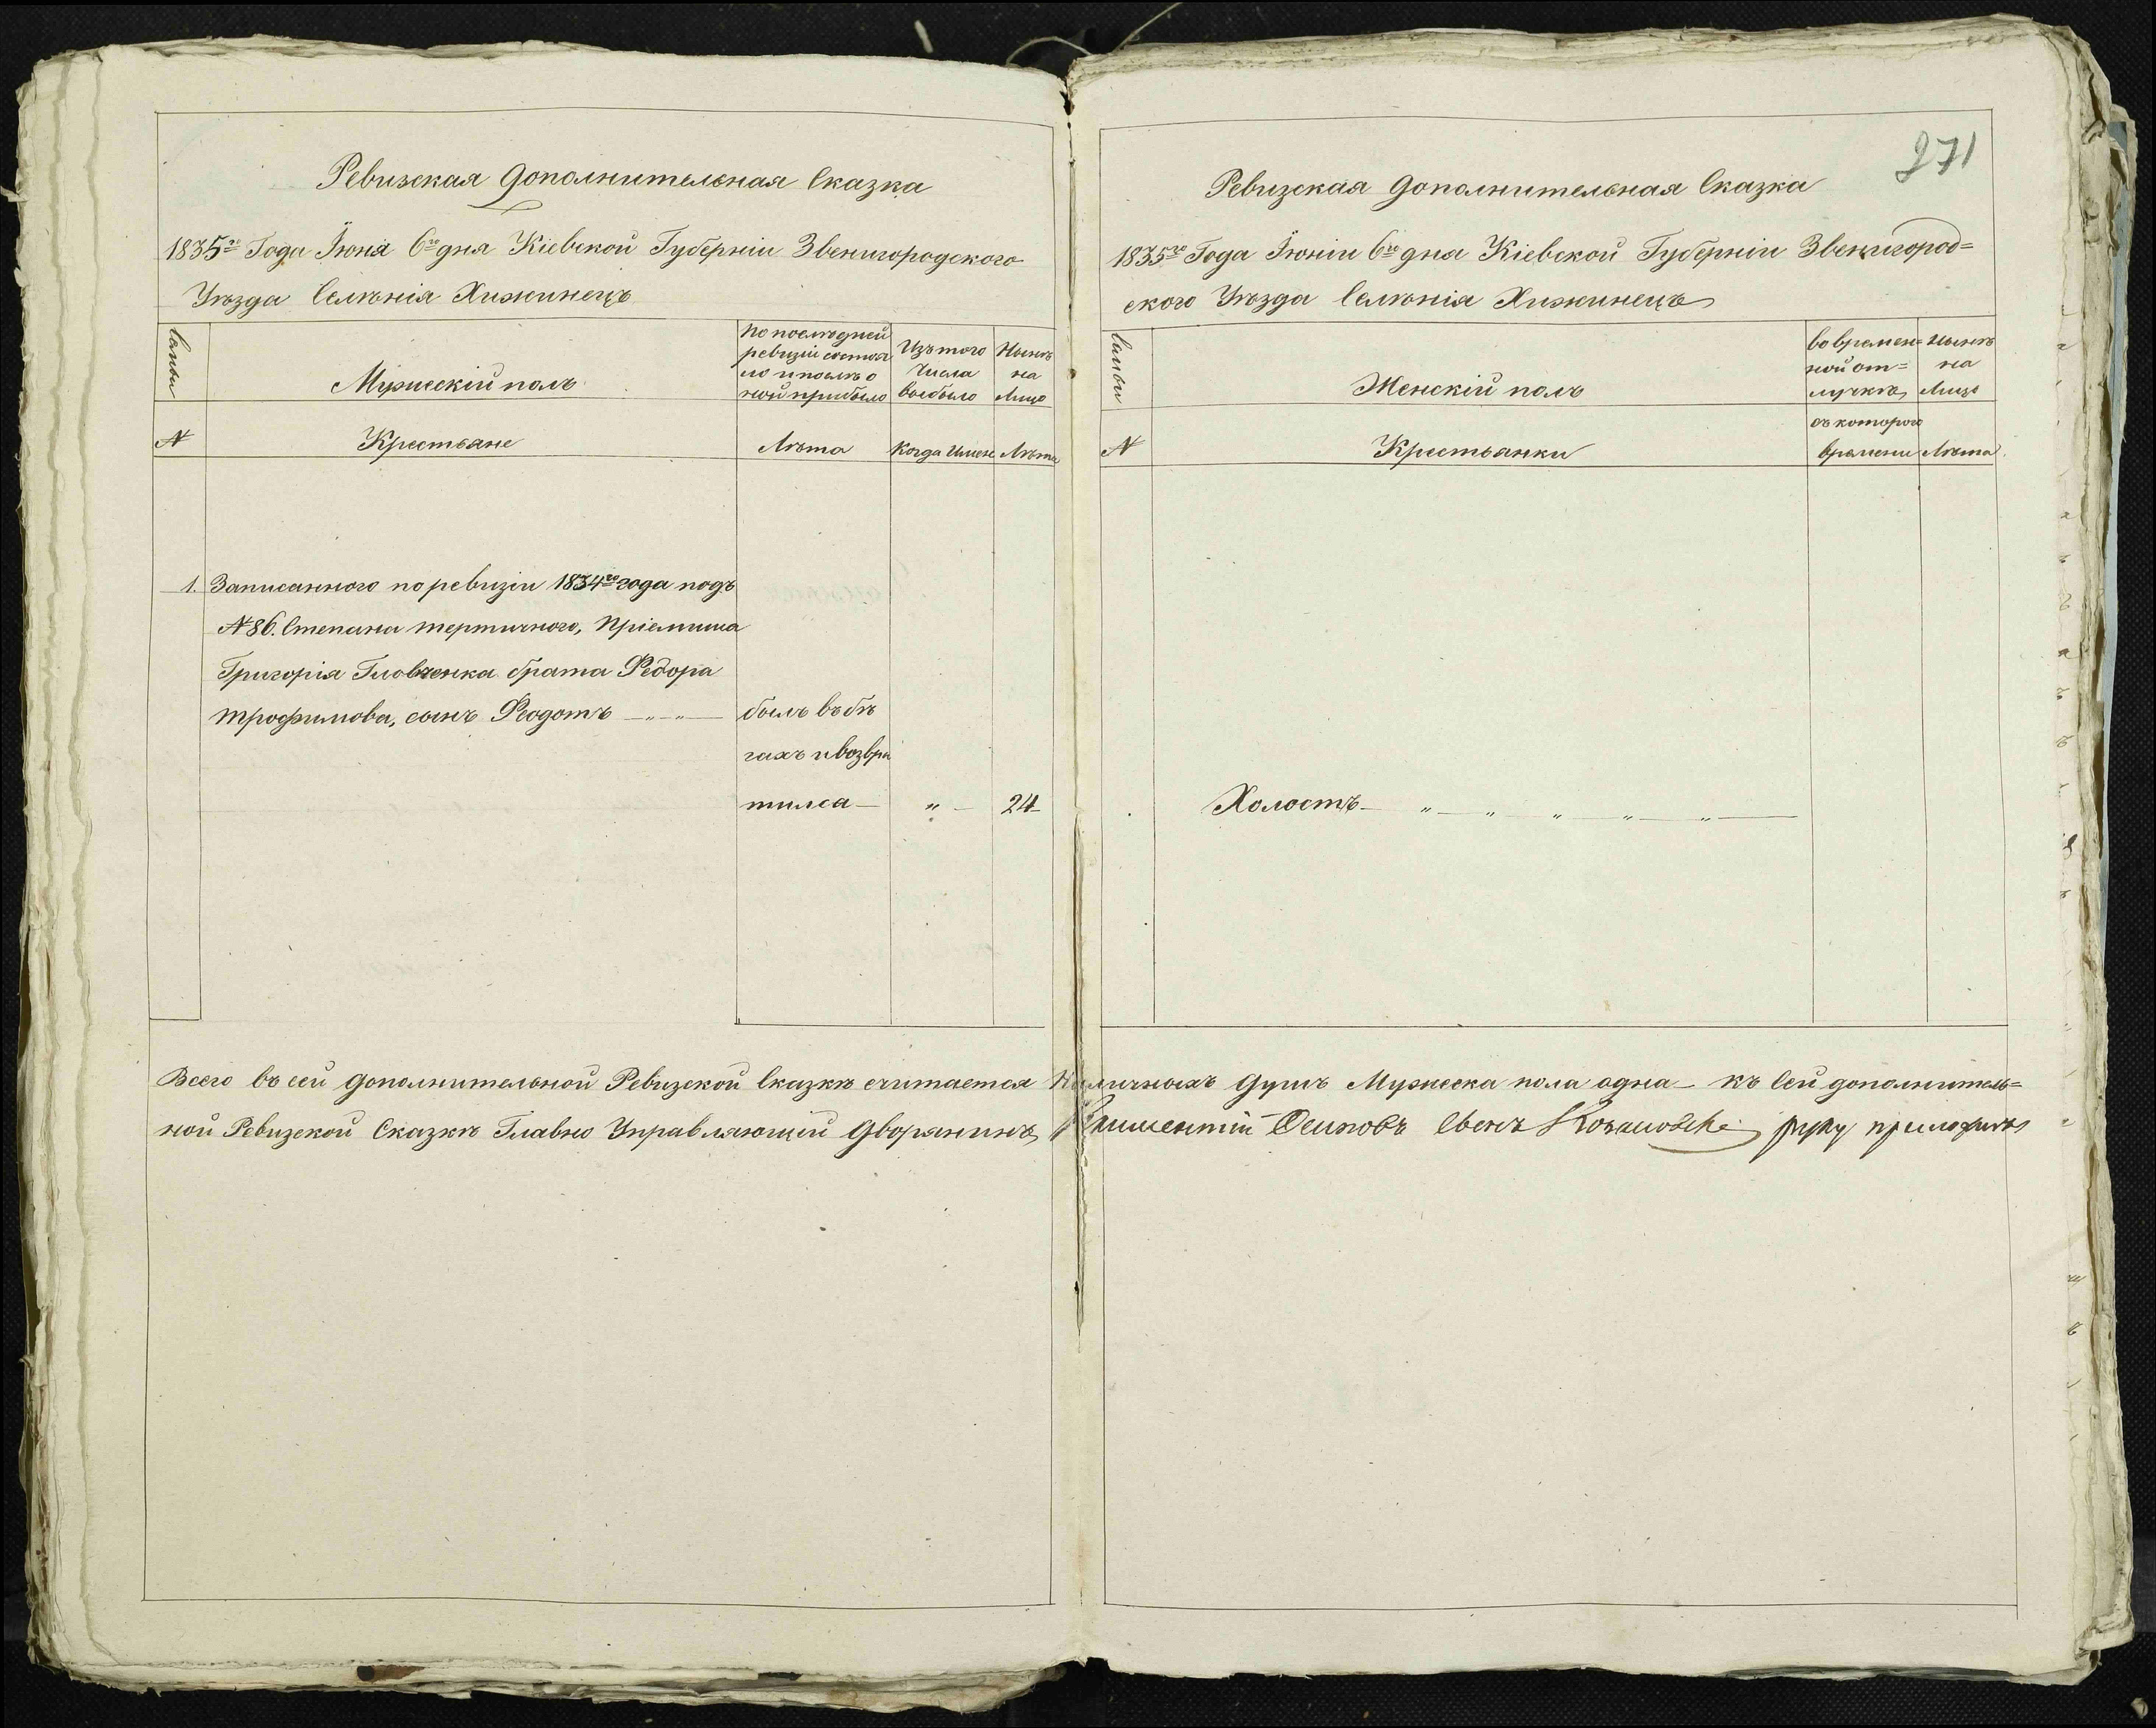 Ревизская дополнительная Сказка
1835го Года Июня 6го дня Кіевской Губерніи Звенигородского
Уѣзда Селѣнія Хижинецъ
Мужескій полъ
По послѣдней
ревизіи состоя
ло и послѣ о
ной прибыло
Изъ того
Числа
выбыло
Нынѣ
на
Лицо
№
Крестьяне
Лѣта
Когда Имене
Лѣта
1. Записанного по ревизіи 1834го года подъ
№ 86. Степана тертичного, Пріемыша
Григорія брата Федора
трофимова, сынъ Феодотъ — „ — „ —
былъ въ бѣ
гахъ и возвра
тился —
„ —
24
Всего въ сей дополнительной Ревизской Сказкѣ считается Наличныхъ душъ Мужеска пола одна — къ Сей дополнитель=
ной Ревизской Сказкѣ Главно Управляющій Дворянинъ Осиповъ Сынъ руку приложилъ
271
Ревизская дополнительная Сказка
1835го Года Июніи 6го дня Кіевской Губерніи Звенигород=
ского Уѣзда Селѣнія Хижинецъ
Женскій полъ
во времен=
ной от=
лучкѣ
Нынѣ
на
Лицо
№
Крестьянки
съ которого
времени
Лѣта
Холостъ — „ — „ — „ — „ — „ —